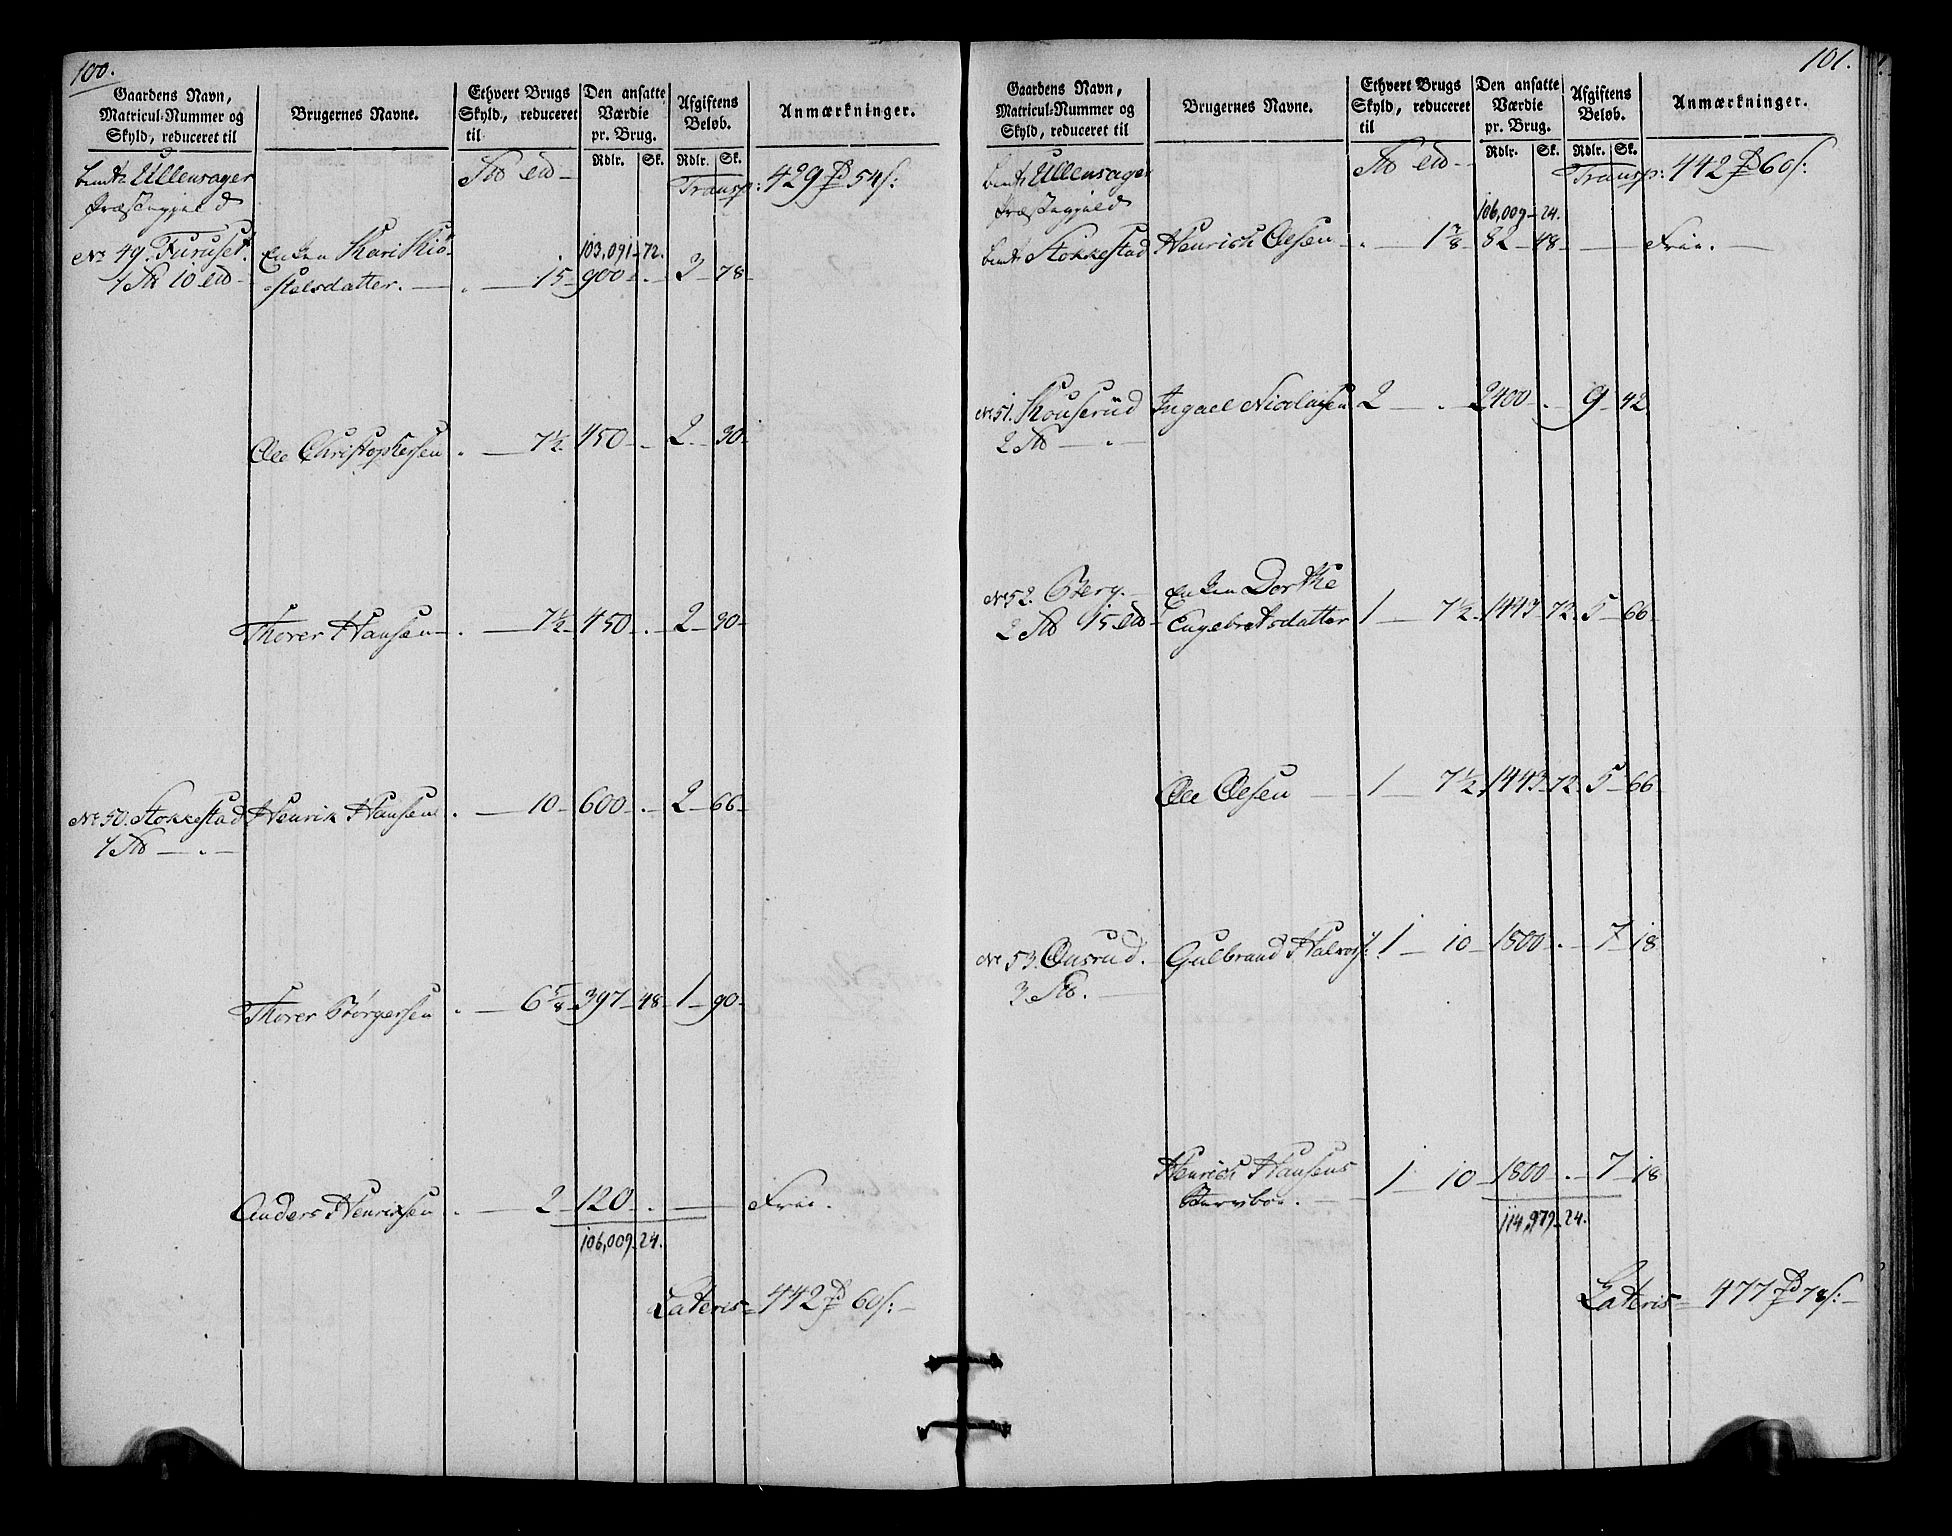 100.
Gaardens Navn, Matricul-Nummer og Skyld, reduceret til
Brugernes Navne.
Ethvert Brugs Skyld, reduceret til
Den ansatte Værdie pr. Brug.
Rdlr. Sk.
Afgiftens Beløb.
Rdlr. Sk.
Anmærkninger.
Ullensager
Præstegjeld
Transp: 429 54 s:
103,091 - 72.
No 49. Furuset. Enken Kari Kiø-
stelsdatter. . 15 - 900 - . - 3 - 78 -
Ole Christophersen . 7½ - 450 - . - 2 - 30 -
Thorer Hansen . 7½ - 450 - . - 2 - 30 -
No 50. Stokkestad Henrik Hansen . 10 - 600 - . - 2 - 66 -
Thorer Børgersen . 6⅝ - 397 - 48 - 1 - 90 -
Anders Henriksen . 2 - 120 - . - Frie.
106,009 - 24.
Lateris = 442 60 s:
101.
Gaardens Navn, Matricul-Nummer og Skyld, reduceret til
Brugernes Navne.
Ethvert Brugs Skyld, reduceret til
Den ansatte Værdie pr. Brug.
Rdlr. Sk.
Afgiftens Beløb.
Rdlr. Sk.
Anmærkninger.
Ullensager
Præstegjeld
Transp: 442 60 s:
106,009 - 24.
Stokkestad Henrich Olesen . 1⅞ 82 - 48 - Frie.
No 51. Kouserud Ingael Nicolaisen 2 - . - 2400 - . - 9 - 42
2
No 52. Berg. Enken Dorthe
2 15 Engebretsdatter 1 - 7½ - 1443 - 72 - 5 - 66
Ole Olesen 1 - 7½ 1443 - 72 - 5 - 66
No 53. Onsrud. Gulbrand Halvors: 1 - 10 - 1800 - . - 7 - 18
3
Henrich Hansens 1 - 10 - 1800 - . - 7 - 18
114,979 - 24.
Lateris = 477 78 s: